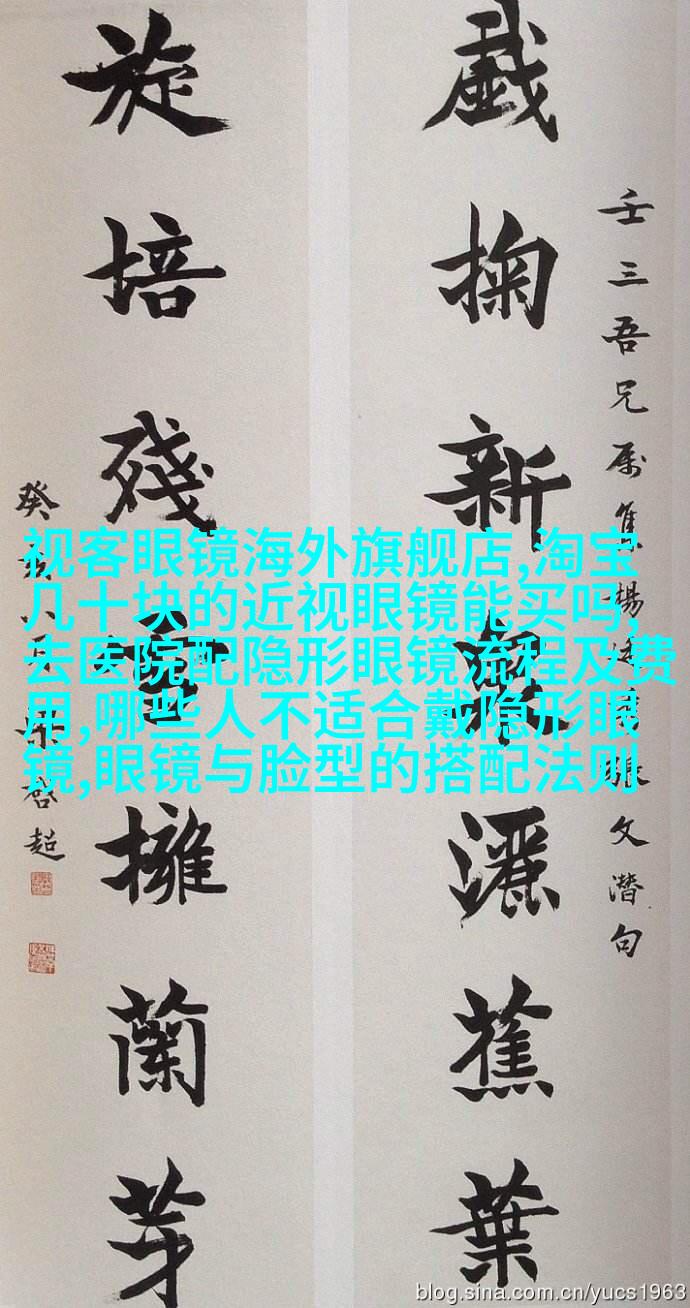 戲掬新灑蕉葉
壬三吾兄属集楊張文潛句
旋培殘擁蘭芽
癸八月啓超
视客眼镜海外旗舰店,淘宝
几十块的近视眼镜能买吗,
去医院配隐形眼镜流程及费
用,哪些人不适合戴隐形眼
镜,眼镜与脸型的搭配法则
blog.sina.com.cn/yucs1963